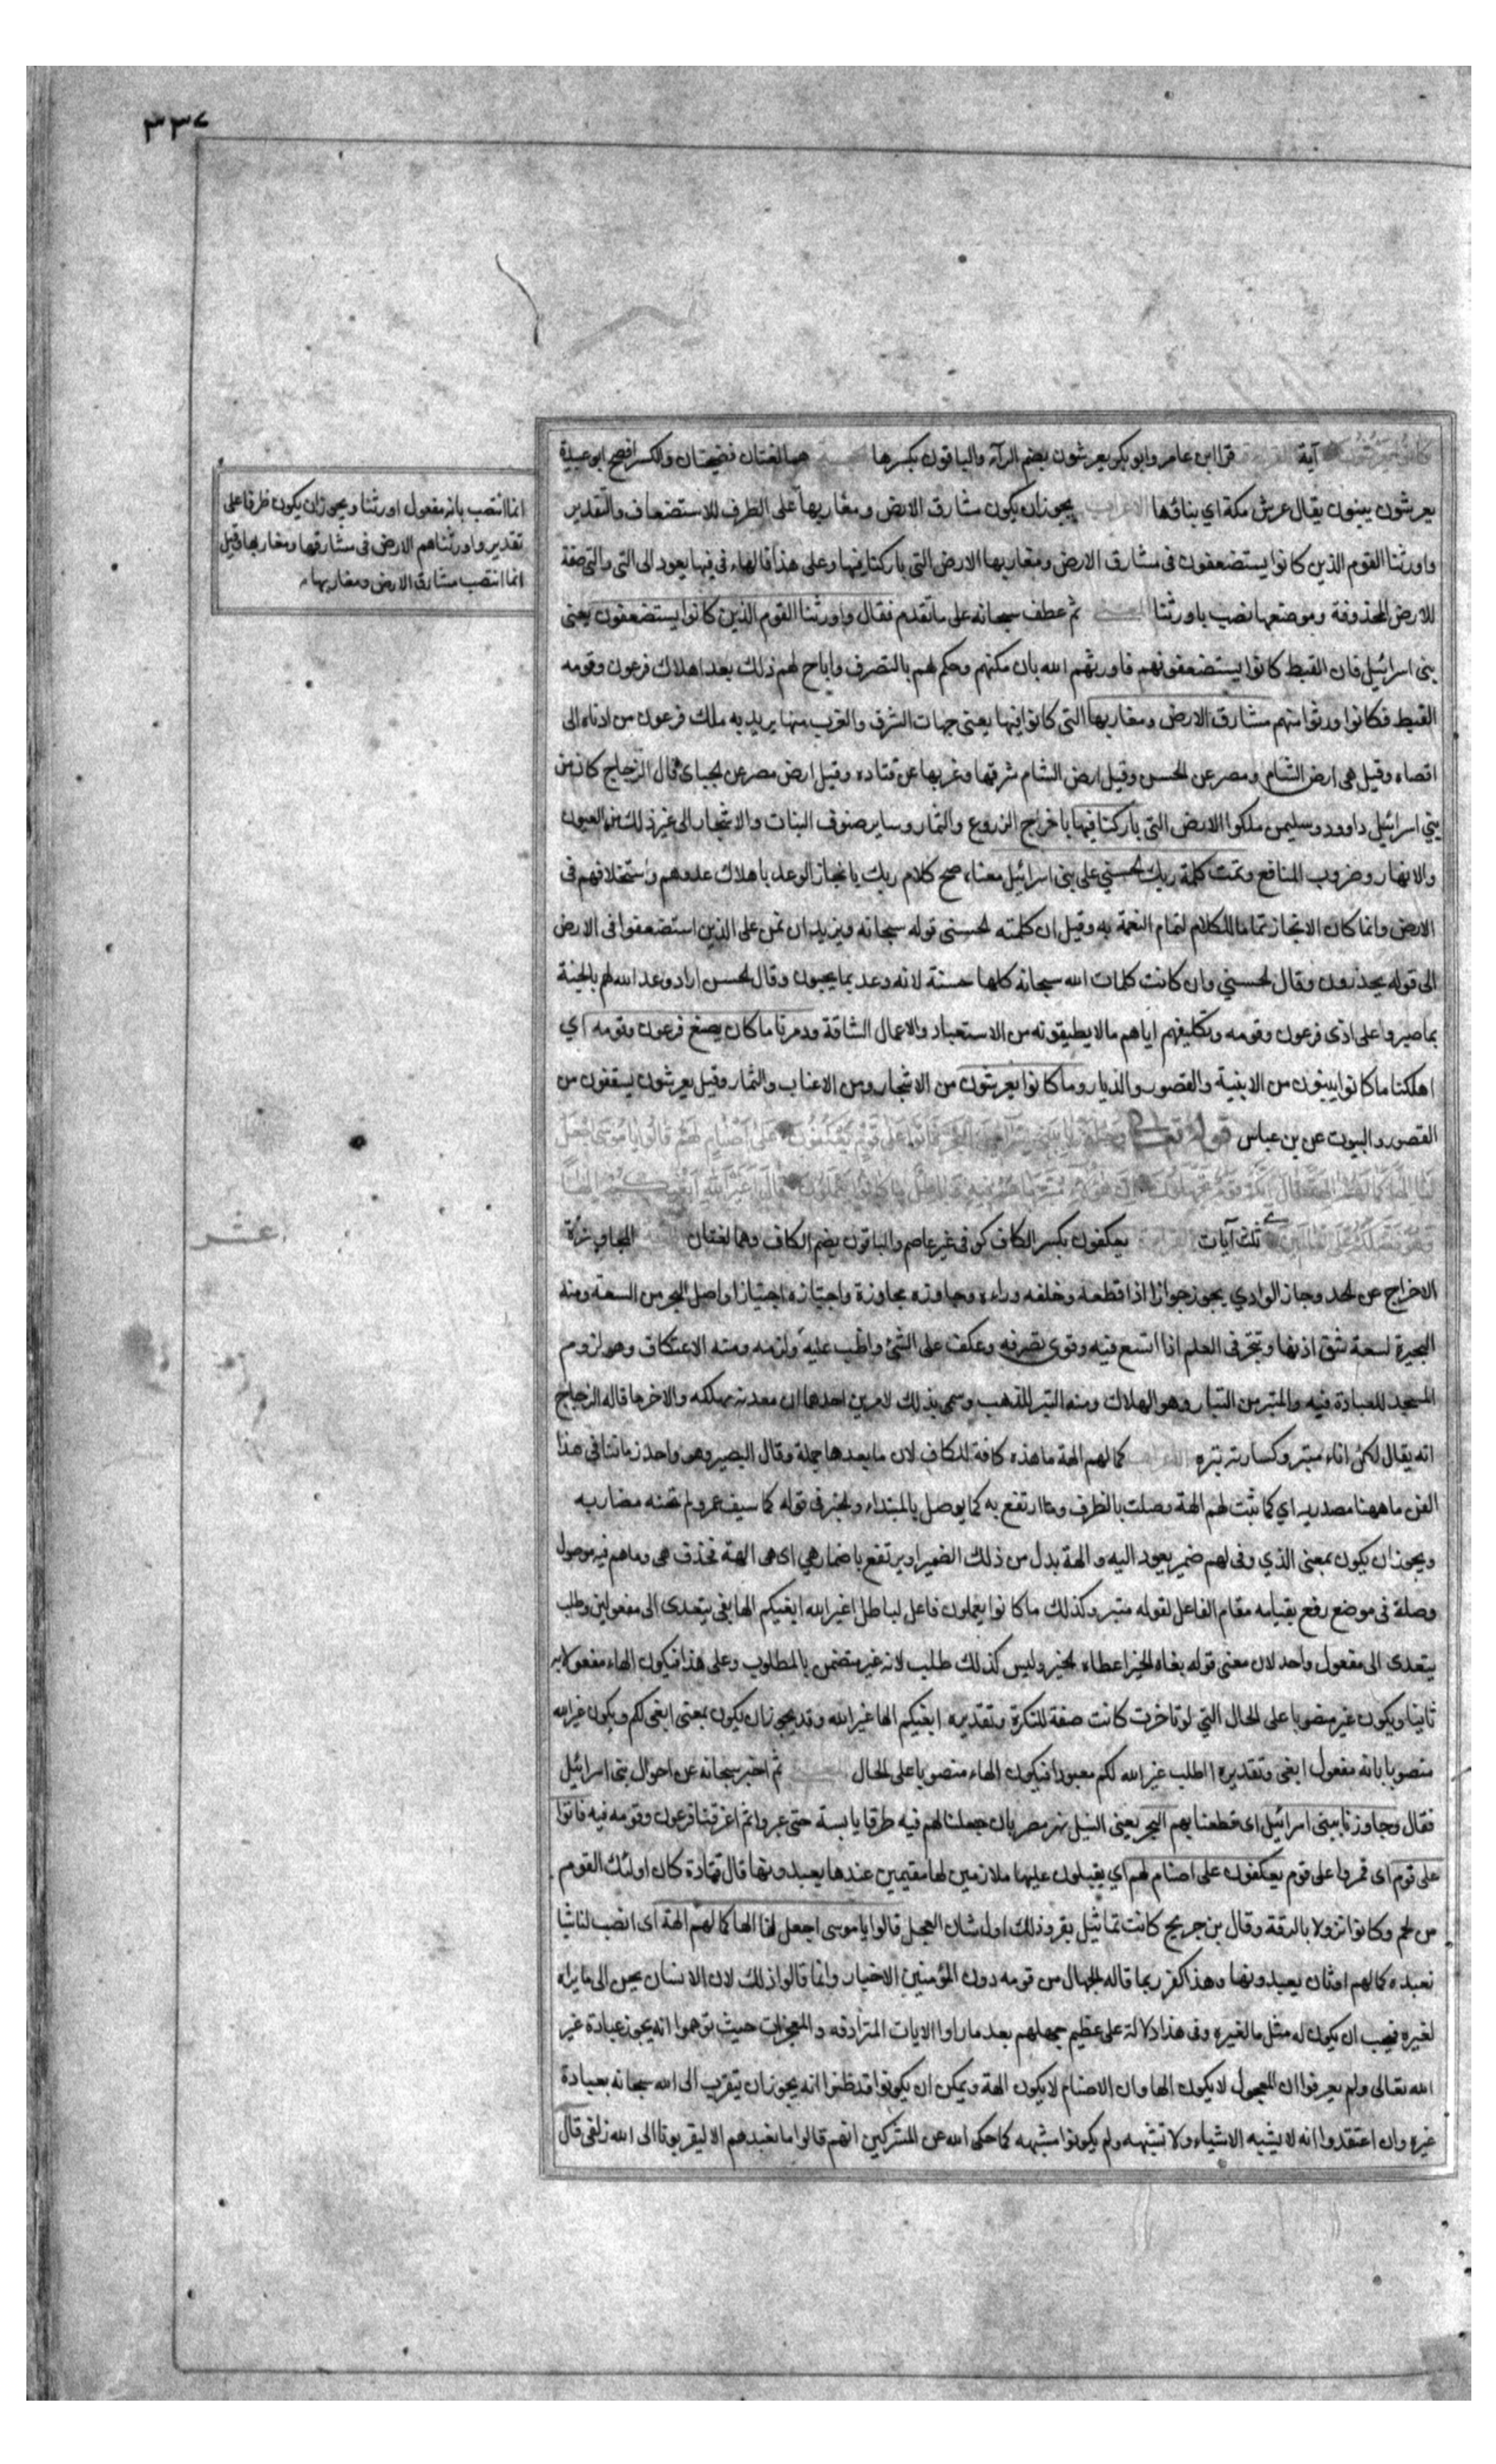 ٣٣٧
كانوا يعرشون آية القراءة قرا ابن عامر وابو بكر يعرشون بضم الرآء والباقون بكسرها الحجة هما لغتان فصيحتان والكسر افصح ابو عبيدة
يعرشون يبنون يقال عرش مكة اي بناؤها الاعراب يجوز ان يكون مشارق الارض ومغاربها على الظرف للاستضعاف والتقدير
واورثنا القوم الذين كانوا يستضعفون فى مشارق الارض ومغاربها الارض التي باركنا فيها وعلى هذا فالهاء فى فيها يعود الى التى والتى صفة
للارض المحذوفة وموضعها نصب باورثنا المعنى ثم عطف سبحانه على ما تقدم فقال واورثنا القوم الذين كانوا يستضعفون يعنى
بنى اسرائيل فان القبط كانوا يستضعفونهم فاورثهم الله بان مكنهم وحكم لهم بالتصرف واباح لهم ذلك بعد اهلاك فرعون وقومه
القبط فكانوا ورثوا منهم مشارق الارض ومغاربها التى كانوا فيها يعنى جهات الشرق والغرب منها يريد به ملك فرعون من ادناه الى
اقصاه وقيل هى ارض الشام ومصر عن الحسن وقيل ارض الشام شرقها وغربها عن قتاده وقيل ارض مصر عن الجباى قال الزجاج كان من
بني اسرائيل داوود وسليمن ملكوا الارض التى باركنا فيها باخراج الزروع والثمار وساير صنوف النبات والاشجار الى غير ذلك من العيون
والانهار وضروب المنافع وتمت كلمة ربك الحسني على بنى اسرائيل معناه صح كلام ربك بانجاز الوعد باهلاك عدوهم واستخلافهم فى
الارض وانما كان الانجاز تماما للكلام لتمام النعمة به وقيل ان كلمته الحسنى قوله سبحانه ونريد ان نمن على الذين استضعفوا فى الارض
الى قوله يحذرون وقال الحسني وان كانت كلمات الله سبحانه كلها حسنة لانه وعد بما يحبون وقال الحسن اراد وعد الله لهم بالجنة
بما صبروا على اذى فرعون وقومه وتكليفهم اياهم ما لا يطيقونه من الاستعباد والاعمال الشاقة ودمرنا ما كان يصنع فرعون وقومه اي
اهلكنا ما كانوا يبنون من الابنية والقصور والديار وما كانوا يعرشون من الاشجار ومن الاعناب والثمار وقيل يعرشون يسقفون من
القصور والبيوت عن بن عباس قوله تعالى وجاوزنا ببنى اسرائيل البحر فاتوا على قوم يعكفون على اصنام لهم قالوا يا موسى اجعل
لنا الها كما لهم الهة قال انكم قوم تجهلون ان هؤلاء متبر ما هم فيه وباطل ما كانوا يعملون قال اغير الله ابغيكم الها
وهو فضلكم على العالمين ثلث آيات القراءة يعكفون بكسر الكاف كوفى غير عاصم والباقون بضم الكاف وهما لغتان المجاوزة
الاخراج عن الحد وجاز الوادي يجوز جوازا اذا قطعه وخلفه وراءه وجاوزه مجاوزة واجتازه اجتيازا واصل البحر من السعة ومنه
البحيرة لسعة شق اذنها وتبحر فى العلم اذا اتسع فيه وقوى تصرفه وعكف على الشئ واظب عليه ولزمه ومنه الاعتكاف وهو لزوم
المسجد للعبادة فيه والمتبر من التبار وهو الهلاك ومنه التبر للذهب وسمى بذلك لامرين احدهما ان معدنه مهلكه والاخر ما قاله الزجاج
انه يقال لكل اناء متبر وكسارته تبره الاعراب كما لهم الهة ما هذه كافة للكاف لان ما بعدها جملة وقال البصير وهو واحد زماننا فى هذا
الفن ما ههنا مصدريه اي كما ثبت لهم الهة وصلت بالظرف وما ارتفع به كما يوصل بالمبتداء والخبر فى قوله كما سيف عمرو لم تخنه مضاربه
ويجوز ان يكون بمعنى الذي وفى لهم ضمير يعود اليه والهة بدل من ذلك الضمير او يرتفع باضمار هي اى هى الهة فحذف هى وما هم فيه موصول
وصلة فى موضع رفع بقيامه مقام الفاعل لقوله متبر وكذلك ما كانوا يعملون فاعل لباطل اغير الله ابغيكم الها بغى يتعدى الى مفعولين وطلب
يتعدى الى مفعول واحد لان معنى قوله بغاه الخير اعطاه الخير وليس كذلك طلب لانه غير متضمن بالمطلوب وعلى هذا فيكون الهاء مفعولا به
ثانيا ويكون غير منصوبا على الحال التي لو تاخرت كانت صفة للنكرة وتقديره ابغيكم الها غير الله وقد يجوز ان يكون بمعنى ابغى لكم ويكون غير الله
منصوبا بانه مفعول ابغى وتقديره اطلب غير الله لكم معبودا فيكون الهاء منصوبا على الحال المعنى ثم اخبر سبحانه عن احوال بنى اسرائيل
فقال وجاوزنا ببنى اسرائيل اى قطعنا بهم البحر يعنى النيل نهر مصر بان جعلنا لهم فيه طرقا يابسة حتى عبروا ثم اغرقنا فرعون وقومه فيه فاتوا
على قوم اى فمروا على قوم يعكفون على اصنام لهم اي يقبلون عليها ملازمين لها مقيمين عندها يعبدونها قال قتادة كان اولئك القوم
من لخم وكانوا نزولا بالرقة وقال بن جريح كانت تماثيل بقر وذلك اول شان العجل قالوا يا موسى اجعل لنا الها كما لهم الهة اى انصب لنا شيا
نعبده كما لهم اوثان يعبدونها وهذا كفر ربما قاله الجهال من قومه دون المؤمنين الاخيار وانما قالوا ذلك لان الانسان يحن الى ما يراه
لغيره فيحب ان يكون له مثل ما لغيره وفى هذا دلالة على عظيم جهلهم بعد ما راوا الايات المترادفه والمعجزات حيث توهموا انه يجوز عبادة غير
الله تعالى ولم يعرفوا ان المجعول لا يكون الها وان الاصنام لا يكون الهة ويمكن ان يكونوا قد ظنوا انه يجوز ان يتقرب الى الله سبحانه بعبادة
غيره وان اعتقدوا انه لا يشبه الاشياء ولا تشبهه ولم يكونوا مشبهه كما حكى الله عن المشركين انهم قالوا ما نعبدهم الا ليقربونا الى الله زلفى قال
انما انتصب بانه مفعول اورثنا ويجوز ان يكون ظرفا على
تقدير واورثناهم الارض فى مشارقها ومغاربها وقيل
انما انتصب مشارق الارض ومغاربها
عشر